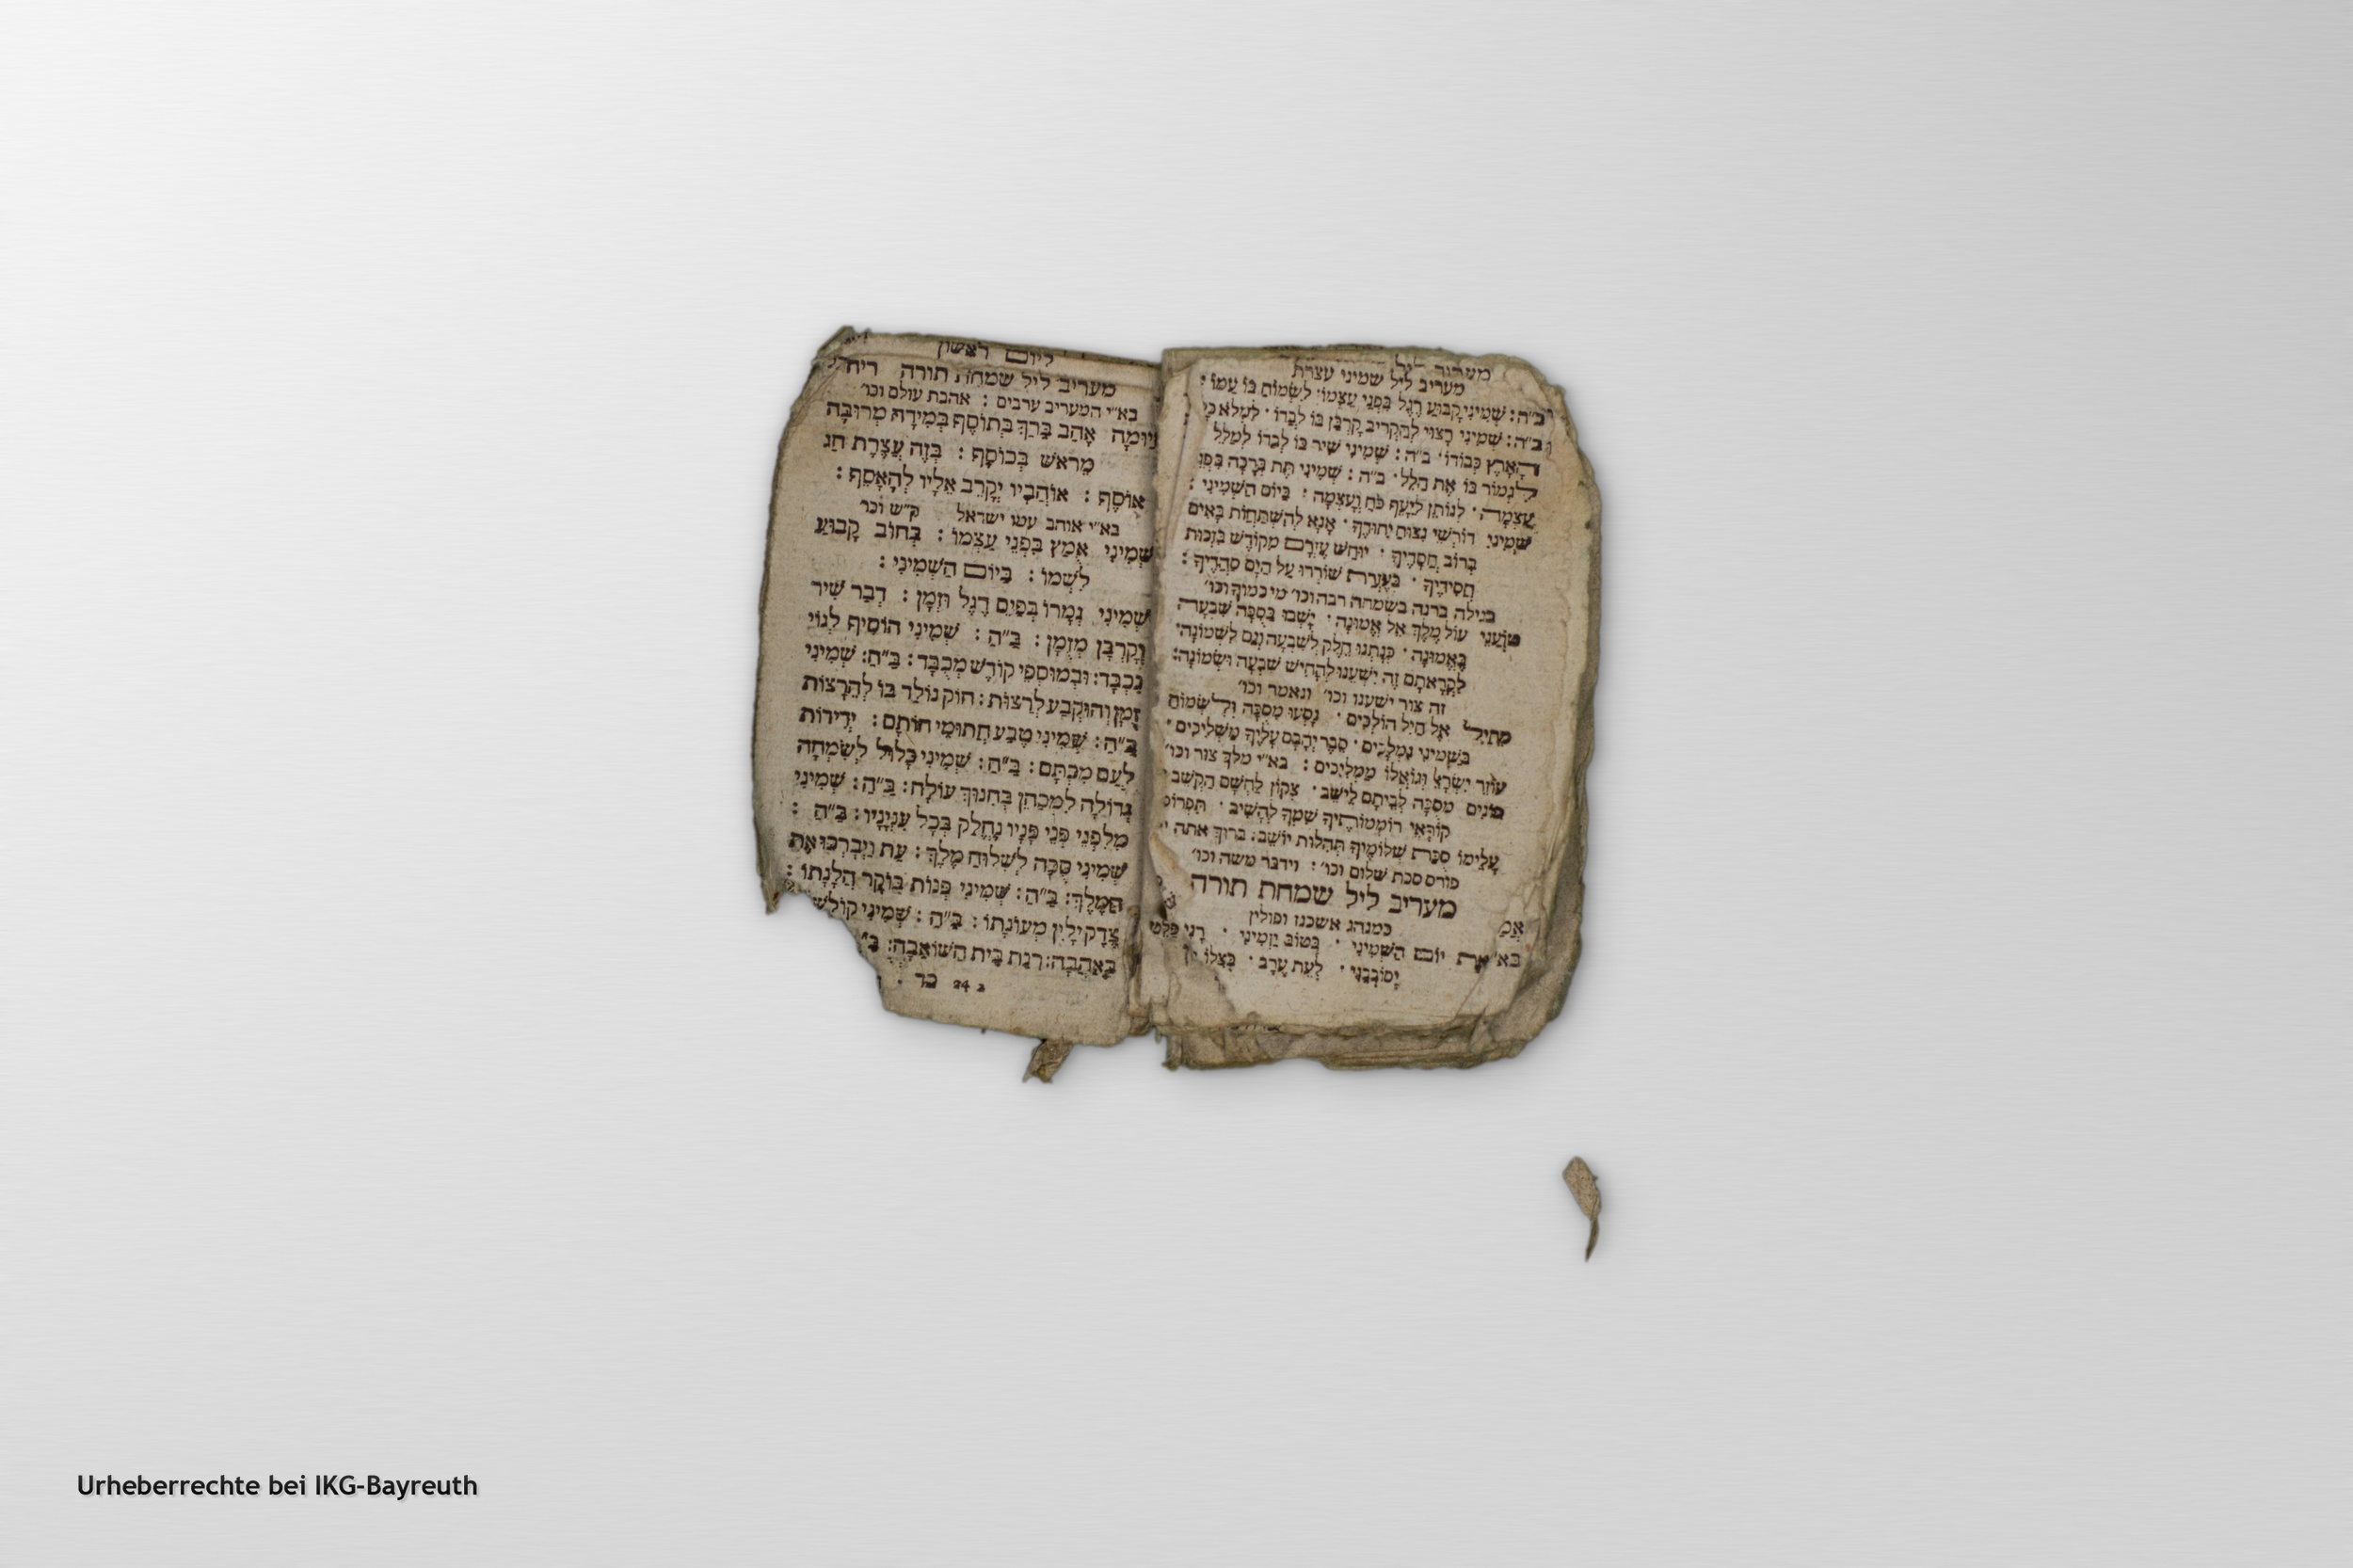 מעריב ליל שמיני עצרת
ב״ה: שְׁמִינִי קָבוּעַ רֶגֶל בִּפְנֵי עַצְמוֹ׃ לִשְׂמוֹחַ בּוֹ עַמּוֹ:
ב״ה: שְׁמִינִי רָצוּי לְהַקְרִיב קָרְבָּן בּוֹ לְבַדּוֹ · לִמְלֹא
וְהָאָרֶץ כְּבוֹדוֹ· ב״ה: שְׁמִינִי שִׁיר בּוֹ לְבַדּוֹ לְמַלֵּל
לִגְמוֹר בּוֹ אֶת הַלֵּל· ב״ה: שְׁמִינִי תֵּת בְּרָכָה בִּפְנֵי
עַצְמָהּ· לְנוֹתֵן לַיָּעֵף כֹּחַ וְעָצְמָה: בַּיּוֹם הַשְּׁמִינִי:
שְׁמִינִי דוֹרְשֵׁי נִצּוּחַ יִחוּדֶךָ · אָנָּא לְהִשְׁתַּחֲוֹת בָּאִים
בְּרוֹב חֲסָדֶיךָ · מִקּוֹדֶשׁ בִּזְכוּת
חֲסִידֶיךָ · שׁוֹרְרוּ עַל הַיָּם
בגילה ברנה בשמחה רבה וכו׳ מי כמוך וכו׳
עוֹל מֶלֶךְ אֵל אֱמוּנָה · יָשְׁבוּ בַּסֻּכָּה שִׁבְעָה
בֶּאֱמוּנָה · כְּנָתְנוּ חֵלֶק לְשִׁבְעָה וְגַם לִשְׁמוֹנָה·
לִקְרָאתָם זֶה יִשְׁעֵנוּ לְהָחִישׁ שִׁבְעָה וּשְׁמוֹנָה:
זה צור ישענו וכו׳ ונאמר וכו׳
אֶל חַיִל הוֹלְכִים · נָסְעוּ מִסֻּכָּה וְלִשְׂמוֹחַ
בַּשְּׁמִינִי נִמְלָכִים · יְהָבָם עָלֶיךָ מַשְׁלִיכִים ·
עוֹזֵר יִשְׂרָאֵל וְגוֹאֲלוֹ מַמְלִיכִים: בא״י מלך צור וכו׳
פּוֹנִים מִסֻּכָּה לְבֵיתָם לֵישֵׁב · צְקוֹן לַחֲשָׁם הַקְשֵׁב
קוֹרְאֵי שִׁמְךָ לְהָשִׁיב ·
עָלֵימוֹ סֻכַּת שְׁלוֹמֶיךָ תְּהִלּוֹת יוֹשֵׁב: ברוך אתה
פורס סכת שלום וכו׳: וידבר משה וכו׳
מעריב ליל שמחת תורה
כמנהג אשכנז ופולין
בא״ אֶת יוֹם הַשְּׁמִינִי · בְּטוֹב יַזְמִינִי · רָנֵּי פַלֵּט
יְסוֹבְבֵנִי · לְעֵת עֶרֶב · בְּצִלּוֹ
ליום ראשון
מעריב ליל שמחת תורה
בא״י המעריב ערבים : אהבת עולם וכו׳
אָהַב בַּרֵךְ בְּתוֹסֶף בְּמִידָה מְרוּבָּה
מֵרֹאשׁ בְּכוֹסֶף : בְּזֶה עֲצֶרֶת חַג
אוֹסֶף : אוֹהֲבָיו יְקָרֵב אֵלָיו לְהֵאָסֵף :
בא״י אוהב עמו ישראל ק״ש וכו׳
שְׁמִינִי אֻמַּץ בִּפְנֵי עַצְמוֹ : בְּחוֹב קָבוּעַ
לִשְׁמוֹ : בַּיּוֹם הַשְּׁמִינִי :
שְׁמִינִי גְּמָרוֹ בְּפַיִס רֶגֶל וּזְמָן : דְּבַר שִׁיר
וְקָרְבָּן מְזֻמָּן : בַּ״הַ : שְׁמִינִי הוֹסִיף לְגוֹי
נִכְבָּד: וּבְמוּסְפֵי קוֹדֶשׁ מְכֻבָּד: בַּ״הַ: שְׁמִינִי
זְמָן וְהוּקְבַּע לִרְצוֹת: חוֹק נוֹלַד בּוֹ לְהֵרָצוֹת
בַּ״הַ: שְׁמִינִי טֶבַע חֲתוּמֵי חוֹתָם: יְדִידוֹת
לְעַם מִכְתָּם: בַּ״הַ: שְׁמִינִי כָּלוּל לְשִׂמְחָה
גְּדוֹלָה לִמְכַהֵן בְּחִנּוּךְ עוֹלָה: בַּ״הַ: שְׁמִינִי
מִלִּפְנֵי פְּנֵי פָּנָיו נֶחֱלַק בְּכָל עִנְיָנָיו: בַּ״הַ :
שְׁמִינִי סֻכָּה לְשִׁלּוּחַ מֶלֶךְ: עֵת וַיְבָרְכוּ אֶת
הַמֶּלֶךְ: בַּ״הַ: שְׁמִינִי פְּנוֹת בּוֹקֶר הֲלָנָתוֹ:
מְעוֹנָתוֹ : בַּ״הַ : שְׁמִינִי
בְּאַהֲבָה: רִנַּת בֵּית הַשּׁוֹאֵבָה:
ג 24 כד
Urheberrechte bei IKG-Bayreuth